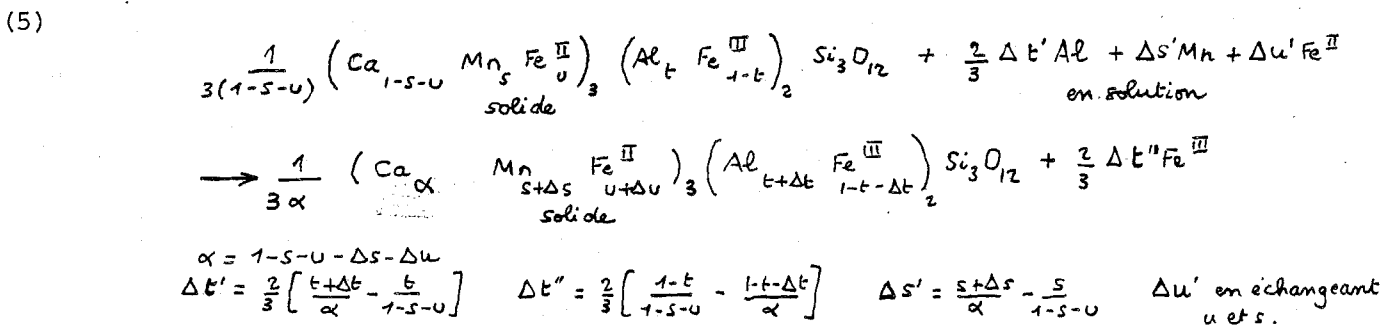 (5)
1/3(1-s-u) (Ca_{1-s-u} Mn_s Fe^{II}_u)_3 (Al_t Fe^{III}_{1-t})_2 Si_3O_{12} + 2/3 Δt'Al + Δs'Mn + Δu'Fe^{II}
solide en solution
→ 1/3α (Ca_α Mn_{s+Δs} Fe^{II}_{u+Δu})_3 (Al_{t+Δt} Fe^{III}_{1-t-Δt})_2 Si_3O_{12} + 2/3 Δt''Fe^{III}
solide
α = 1-s-u-Δs-Δu
Δt' = 2/3 [t+Δt/α - t/1-s-u] Δt'' = 2/3 [1-t/1-s-u - 1-t-Δt/α] Δs' = s+Δs/α - s/1-s-u Δu' en échangeant
u et s.